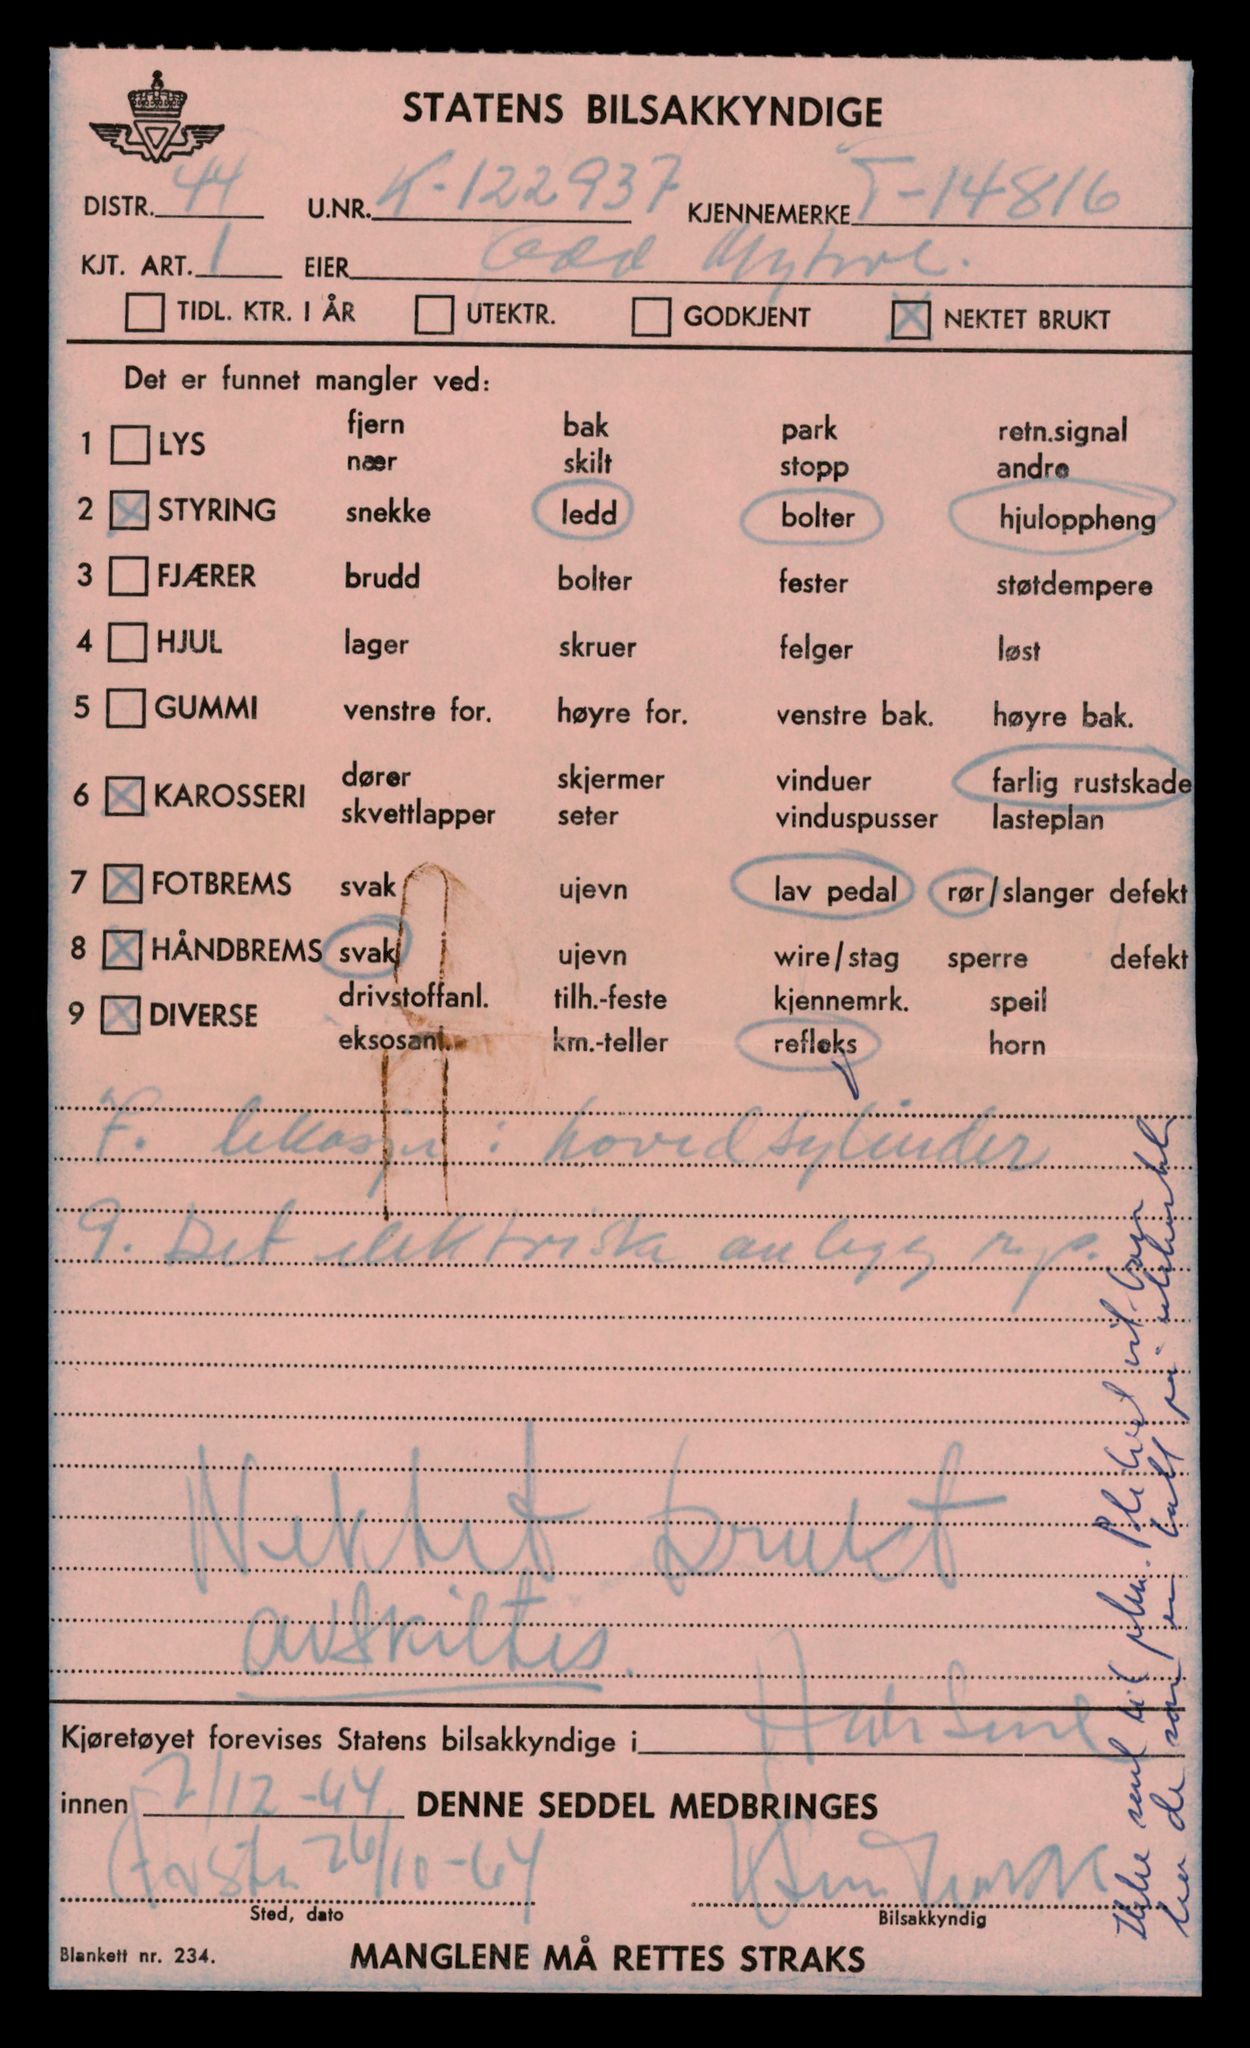 STATENS BILSAKKYNDIGE
DISTR. 44 U.NR. K-122937 KJENNEMERKE T-14816
KJT. ART. 1 EIER Odd
TIDL. KTR. I ÅR UTEKTR. GODKJENT NEKTET BRUKT
Det er funnet mangler ved:
1 LYS fjern bak park retn.signal
nær skilt stopp andre
2 STYRING snekke ledd bolter hjuloppheng
3 FJÆRER brudd bolter fester støtdempere
4 HJUL lager skruer felger løst
5 GUMMI venstre for. høyre for. venstre bak. høyre bak.
6 KAROSSERI dører skjermer vinduer farlig rustskade
skvettlapper seter vinduspusser lasteplan
7 FOTBREMS svak ujevn lav pedal rør/slanger defekt
8 HÅNDBREMS svak ujevn wire/stag sperre defekt
9 DIVERSE drivstoffanl. tilh.-feste kjennemrk. speil
eksosanl. km.-teller refleks horn
7. lekasje i hovedsylinder
9. Det elektriske anlegg
Nektet brukt
avskiltes.
Kjøretøyet forevises Statens bilsakkyndige i
innen 7/12-64 DENNE SEDDEL MEDBRINGES
26/10-64
Sted, dato Bilsakkyndig
Blankett nr. 234. MANGLENE MÅ RETTES STRAKS